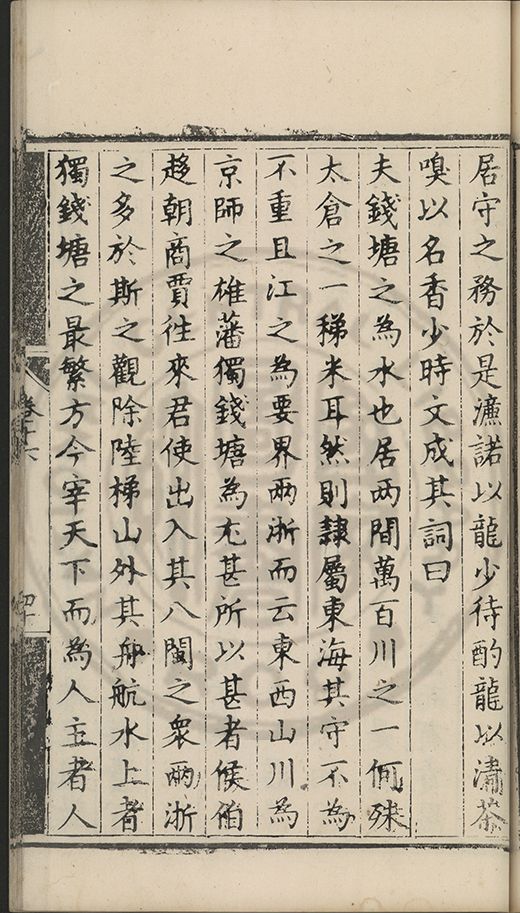 居守之務於是濂諾以龍少待酌龍以瀟茶
嗅以名香少時文成其詞曰
夫錢塘之為水也居两間萬百川之一何殊
太倉之一稊米耳然則隷屬東海其守不為
不重且江之為要界兩浙而云東西山川為
京師之雄藩獨錢塘為尤甚所以甚者候伯
趍朝商賈徃來君使出入其八閩之衆兩浙
之多於斯之觀除陸梯山外其舟航水上者
獨錢塘之最繁方今宰天下而為人主者人
卷十六